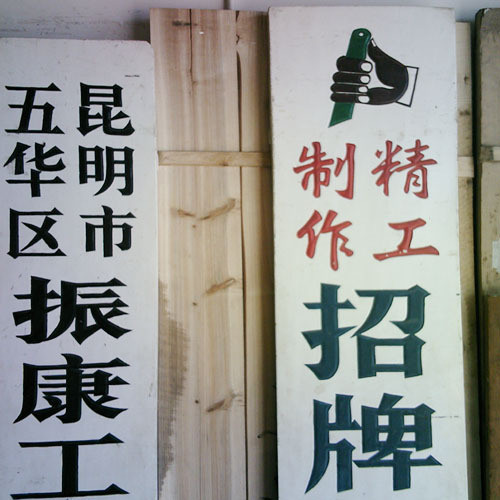 昆明市
五华区
振康工
精工
制作
招牌